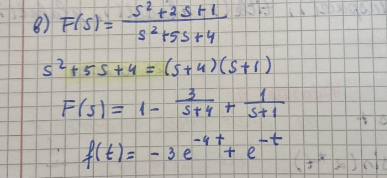 в) F(s) = (s² + 2s + 1) / (s² + 5s + 4)
s² + 5s + 4 = (s+4)(s+1)
F(s) = 1 - 3/(s+4) + 1/(s+1)
f(t) = -3e^(-4t) + e^(-t)